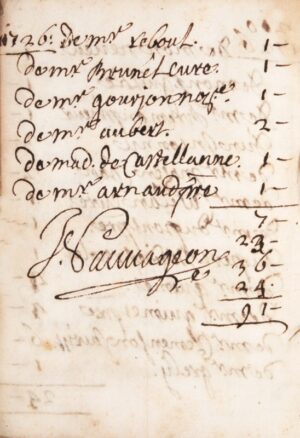 1726: de mr rebout. 1-
de mr Brunet Cure. 1-
de mr gourjon nore. 1-
de mr aubert. 2-
de mad. de Castellanne. 1-
de mre arnaud pre 1-
7-
J. Sauuageon 23-
36
24.
91-